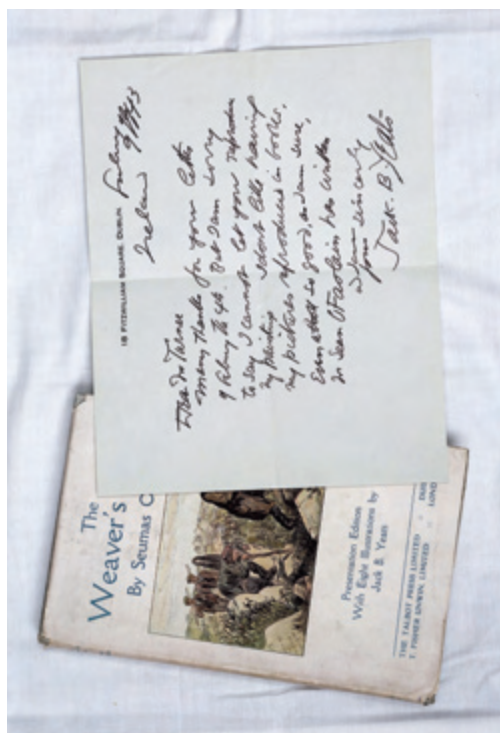 18 FITZWILLIAM SQUARE, DUBLIN
Ireland
Dear
Many thanks for your letter
of the 4th. But I am sorry
to say I cannot let you reproduce
my painting I don't like having
my pictures reproduced in books,
is good, as I am sure,
Sean O'Faolain has written
yours sincerely
Jack. B. Yeats
The
Weaver's
By Seumas O
Presentation Edition
With Eight Illustrations by
Jack B. Yeats
THE TALBOT PRESS LIMITED
T. FISHER UNWIN, LIMITED